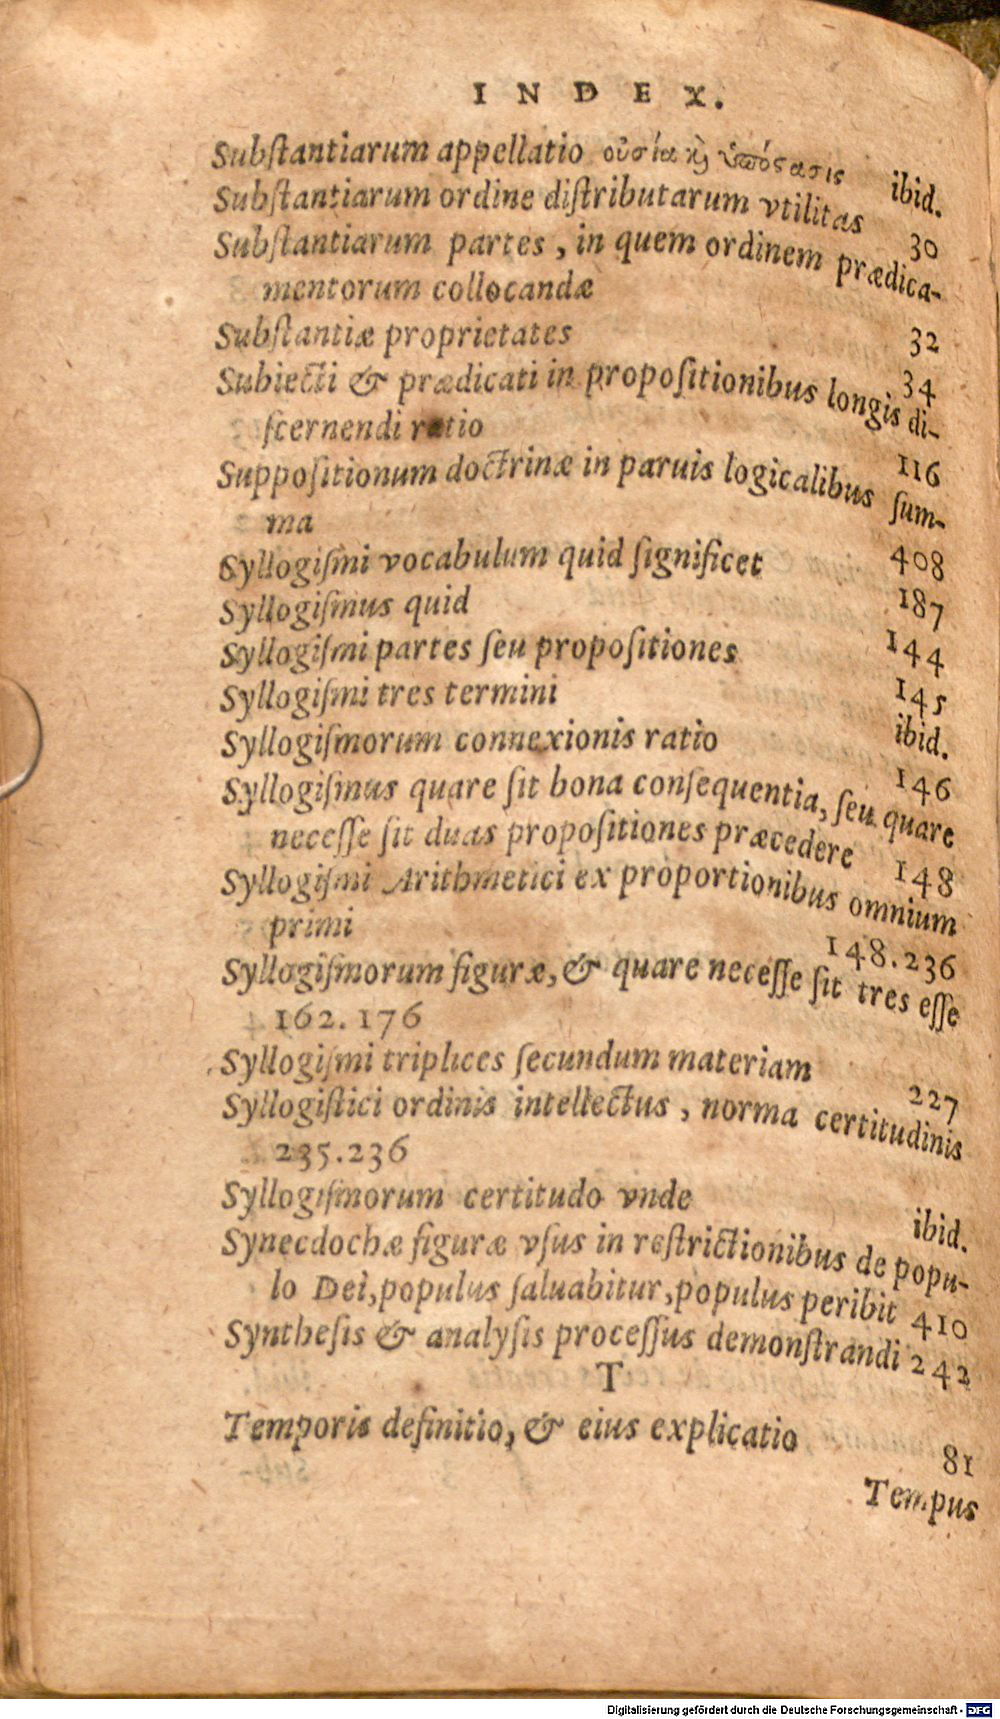 INDEX.
Subſtantiarum appellatio οὐσία κỳ ὑπόςασις ibid.
Subſtantiarum ordine diſtributarum vtilitas 30
Subſtantiarum partes, in quem ordinem prædica-
mentorum collocandæ 32
Subſtantiæ proprietates 34
Subiecti & prædicati in propoſitionibus longis di-
ſcernendi ratio 116
Suppoſitionum doctrinæ in paruis logicalibus ſum-
ma 408
Syllogiſmi vocabulum quid ſignificet 187
Syllogiſmus quid 144
Syllogiſmi partes ſeu propoſitiones 145
Syllogiſmi tres termini ibid.
Syllogiſmorum connexionis ratio 146
Syllogiſmus quare ſit bona conſequentia, ſeu quare
neceſſe ſit duas propoſitiones præcedere 148
Syllogiſmi Arithmetici ex proportionibus omnium
primi 148.236
Syllogiſmorum figuræ, & quare neceſſe ſit tres eſſe
162.176
Syllogiſmi triplices ſecundum materiam 227
Syllogiſtici ordinis intellectus, norma certitudinis
235.236
Syllogiſmorum certitudo vnde ibid.
Synecdochæ figuræ vſus in reſtrictionibus de popu-
lo Dei, populus ſaluabitur, populus peribit 410
Syntheſis & analyſis proceſſus demonſtrandi 242
T
Temporis definitio, & eius explicatio 81
Tempus
Digitalisierung gefördert durch die Deutsche Forschungsgemeinschaft - DFG